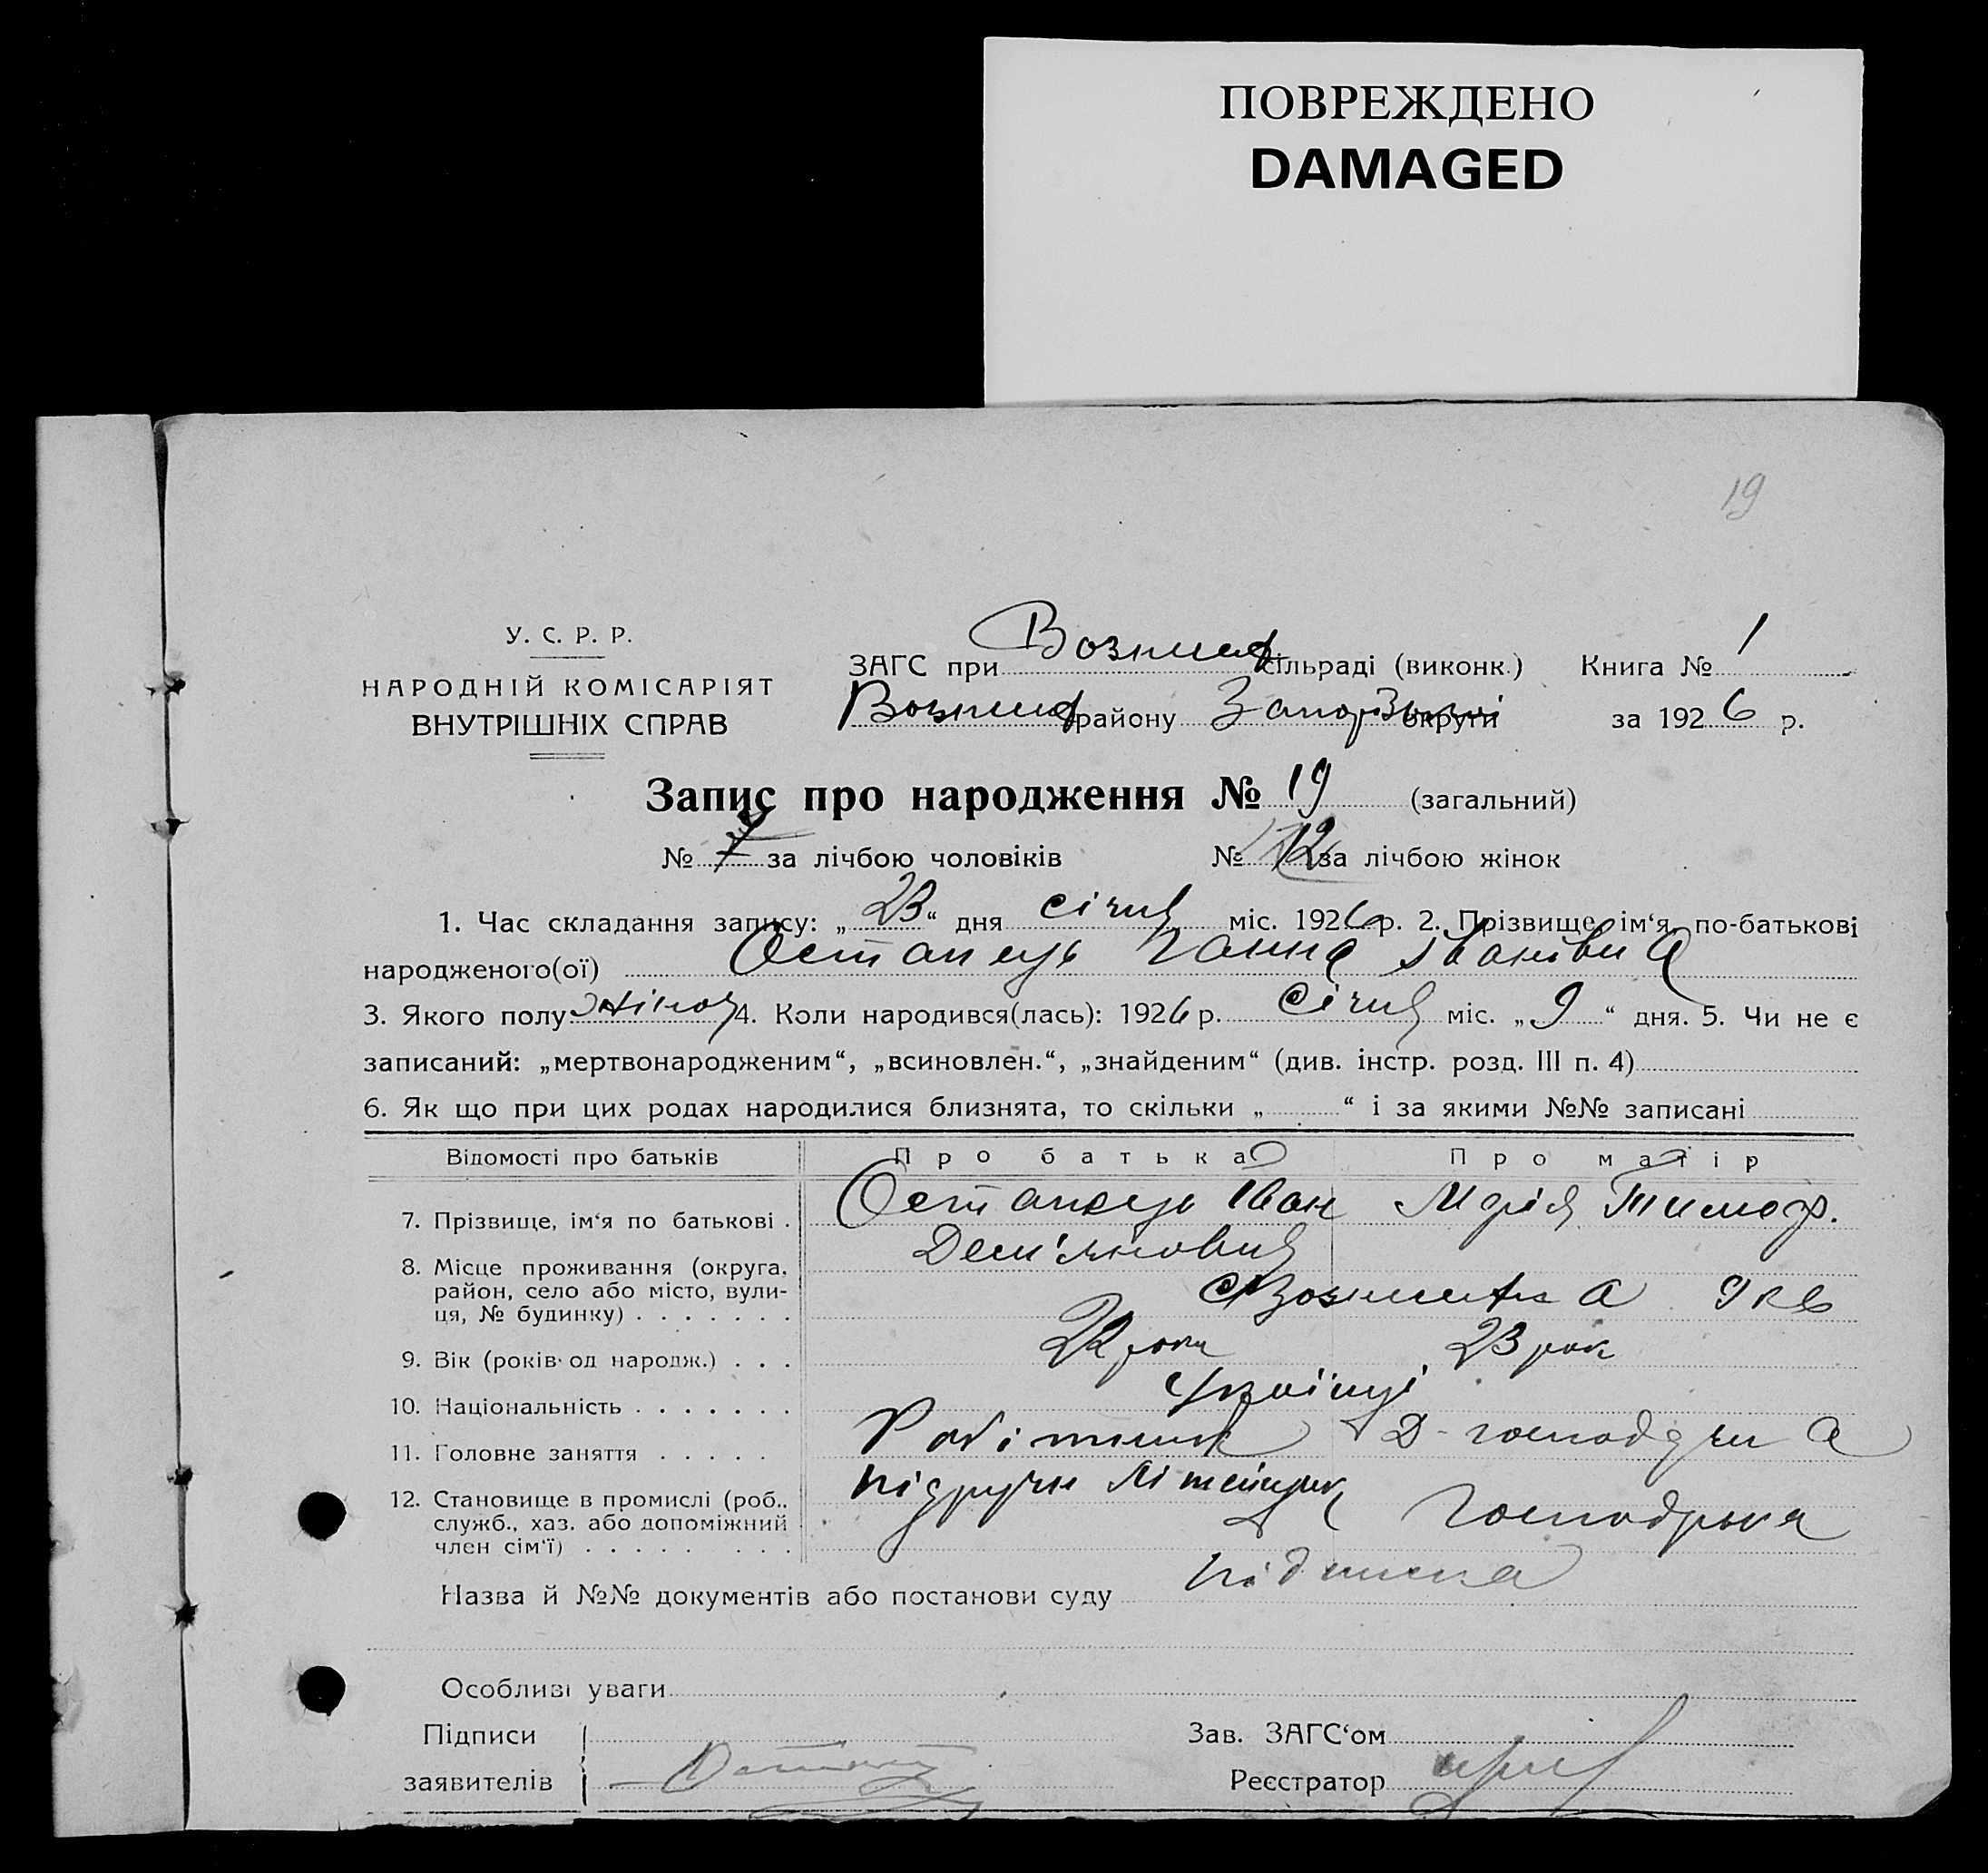 ПОВРЕЖДЕНО
DAMAGED
19
У. С. Р. Р.
НАРОДНІЙ КОМІСАРІЯТ
ВНУТРІШНІХ СПРАВ
ЗАГС при сільраді (виконк.) Книга № 1
району округи за 1926 р.
Запис про народження № 19 (загальний)
№ за лічбою чоловіків № 12 за лічбою жінок
1. Час складання запису: „23“ дня січня міс. 1926 р. 2. Прізвище, ім‘я, по-батькові
народженого(ої) Остапець Ганна Іванівна
3. Якого полу жіноч 4. Коли народився(лась): 1926 р. Січня міс. „9“ дня. 5. Чи не є
записаний: „мертвонародженим“, „всиновлен.“, „знайденим“ (див. інстр. розд. III п. 4)
6. Як що при цих родах народилися близнята, то скільки „ “ і за якими №№ записані
Відомості про батьків Про батька Про матір
7. Прізвище, ім‘я по батькові . Остапець Іван Марія Тимоф.
Дем'янович
8. Місце проживання (округа,
район, село або місто, вули-
ця, № будинку) . . . . . . .
9. Вік (років од народж.) . . . 22 роки 23 рок
10. Національність . . . . . . . Українці
11. Головне заняття . . . . . Робітник Д-господарка
12. Становище в промислі (роб.,
служб., хаз. або допоміжний
член сім‘ї) . . . . . . . .
підручн
Господарка
Назва й №№ документів або постанови суду підписка
Особливі уваги
Підписи
заявителів
Зав. ЗАГС‘ом
Реєстратор